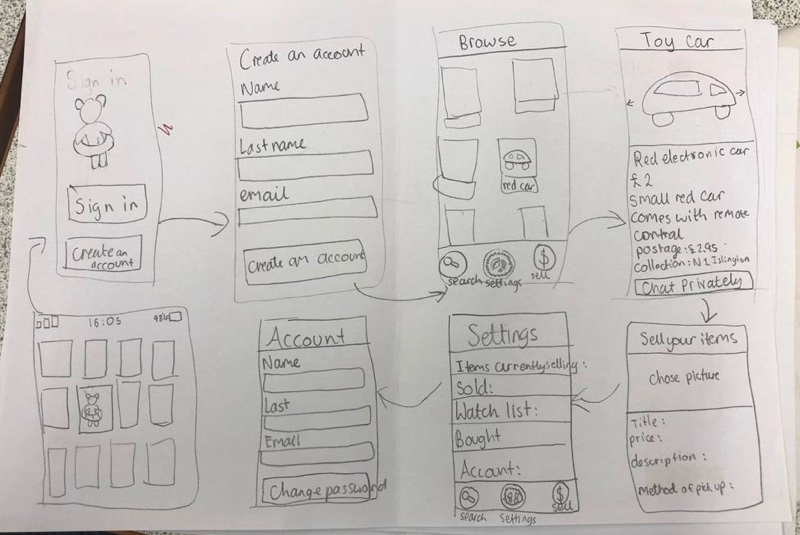 Sign in
Sign in
Create an
account
Create an account
Name
Last name
email
Create an account
Browse
red car
search
settings
sell
Toy car
Red electronic car
£2
Small red car
comes with remote
control
postage: £2.95
collection: N1 Islington
Chat Privately
16:05
Account
Name
Last
Email
Change password
Settings
Items currently selling:
Sold:
Watch list:
Bought
Account:
search
settings
sell
Sell your items
chose picture
Title:
price:
description:
Method of pick up: